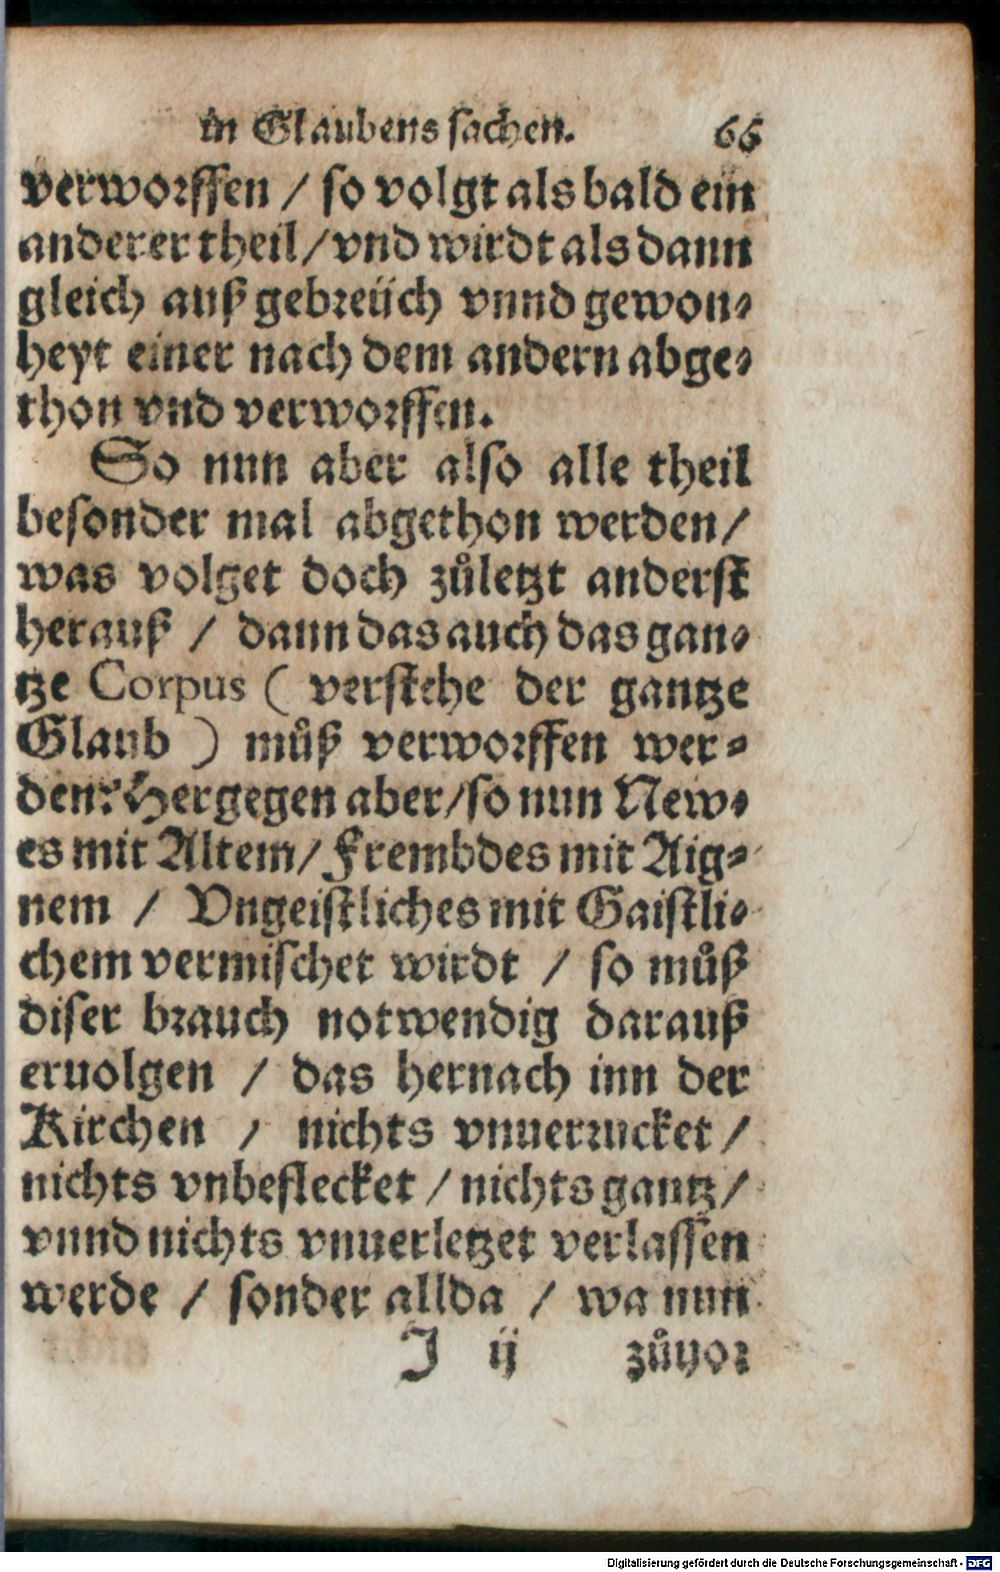 in Glaubens sachen. 66
verworffen / so volgt als bald ein
anderer theil / vnd wirdt als dann
gleich auß gebreüch vnnd gewon-
heyt einer nach dem andern abge-
thon vnd verworffen.
So nun aber also alle theil
besonder mal abgethon werden /
was volget doch zůletzt anderst
herauß / dann das auch das gan-
tze Corpus ( verstehe der gantze
Glaub ) můß verworffen wer-
den? Hergegen aber / so nun New-
es mit Altem / Frembdes mit Aig-
nem / Vngeistliches mit Gaistli-
chem vermischet wirdt / so můß
diser brauch notwendig darauß
eruolgen / das hernach inn der
Kirchen / nichts vnuerrucket /
nichts vnbeflecket / nichts gantz /
vnnd nichts vnuerletzet verlassen
werde / sonder allda / wa nun
J ij zůuor
Digitalisierung gefördert durch die Deutsche Forschungsgemeinschaft - DFG